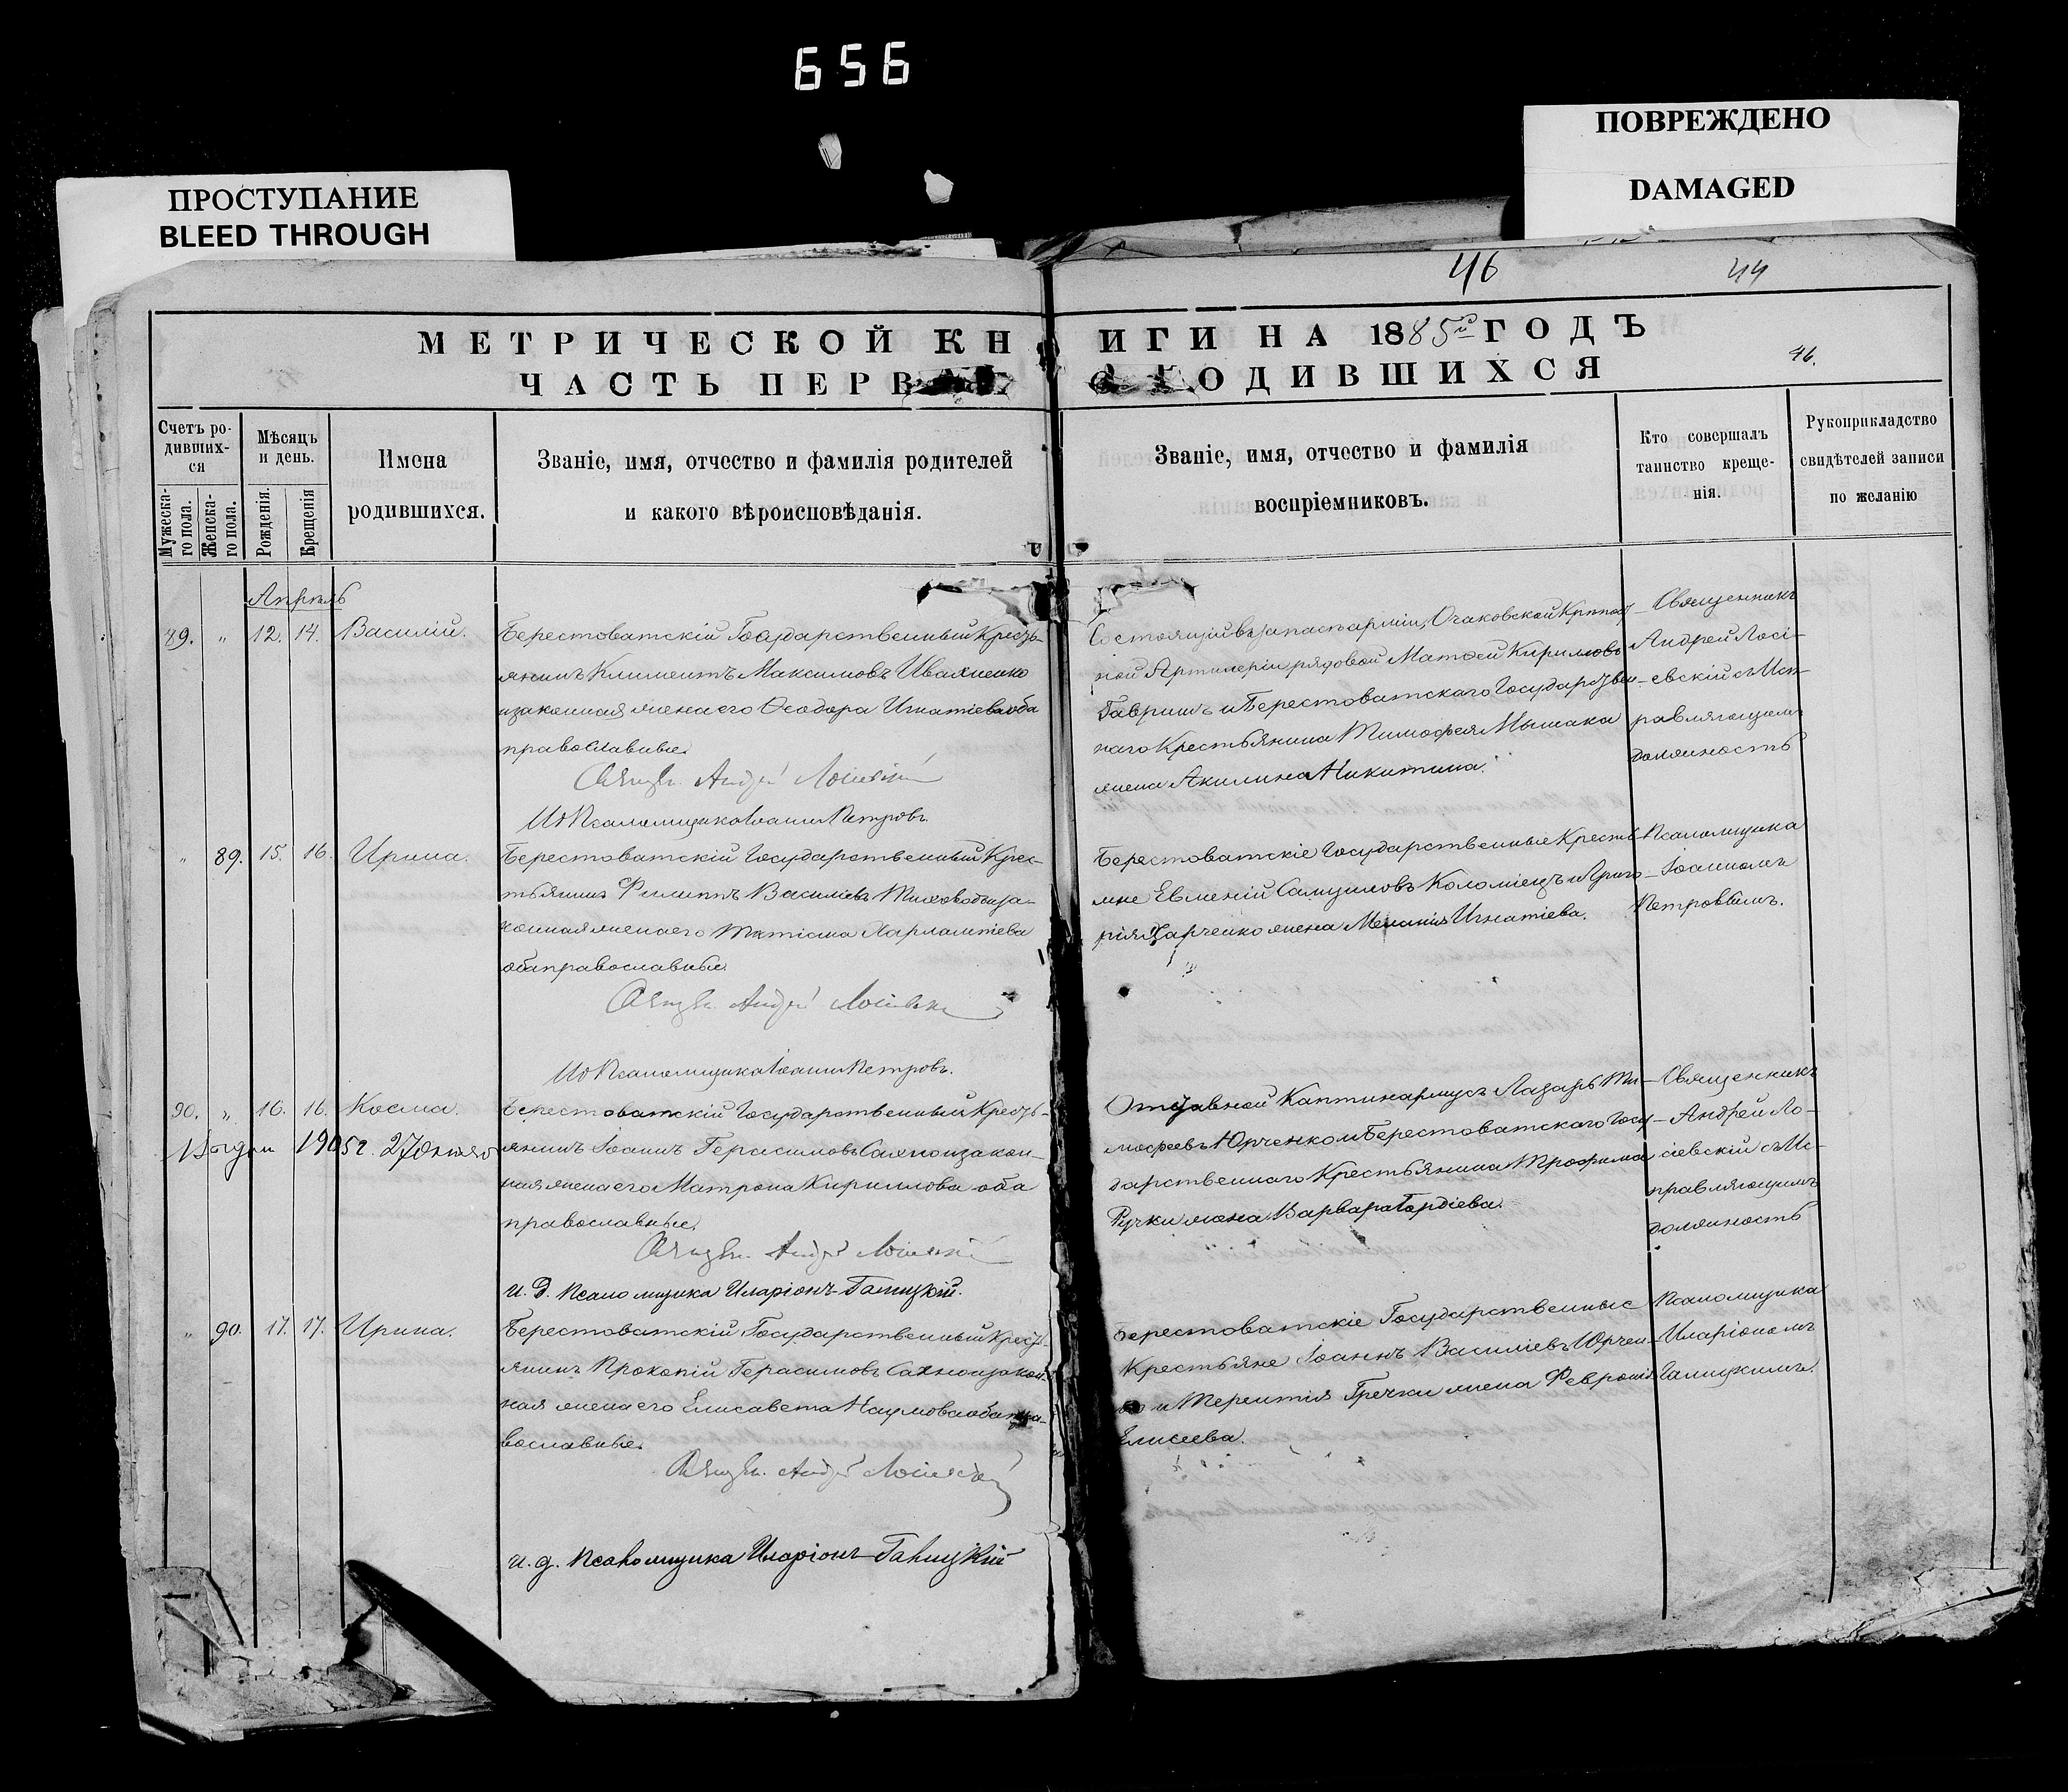 656
ПРОСТУПАНИЕ
BLEED THROUGH
ПОВРЕЖДЕНО
DAMAGED
46
44
МЕТРИЧЕСКОЙ КН
ИГИ НА 1885й ГОДЪ
46.
ЧАСТЬ ПЕРВ
РОДИВШИХСЯ
Счетъ ро-
дивших-
ся
Мужеска-
го пола.
Женска-
го пола.
Мѣсяцъ
и день.
Рожденія.
Крещенія
Имена
родившихся.
Званіе, имя, отчество и фамилія родителей
и какого вѣроисповѣданія.
Званіе, имя, отчество и фамилія
воспріемниковъ.
Кто совершалъ
таинство креще-
нія.
Рукоприкладство
свидѣтелей записи
по желанію
Апрѣль
89. " 12. 14. Василій.
Берестоватскій Государственный Кресть-
янинъ Климентъ Максимовъ Иваненко
и законная жена его Ѳеодора Игнатіева оба
православные.
Священ. Андрей Лосіевскій
ИД Псаломщика Іоаннъ Петровъ.
Состоящій въ запасѣ арміи, Очаковской Крѣпост-
ной Артилеріи рядовой Матѳей Кирилловъ
Гавришъ и Берестоватскаго Государствен-
наго Крестьянина Тимофея Мышака
жена Акилина Никитина.
Священникъ
Андрей Лосі-
евскій съ Исп-
равляющимъ
должность
" 89. 15. 16. Ирина.
Берестоватскій Государственный Крес-
тьянинъ Филиппъ Василіевъ и за-
конная жена его Татіана Харлампіева
оба православные.
Священ. Андрей Лосіевскій
ИД Псаломщика Іоаннъ Петровъ.
Берестоватскіе Государственные Крестья-
не Евменій Самуиловъ Коломіецъ и Григо-
рія Харченко жена Меланія Игнатіева.
Псаломщика
Іоанномъ
Петровымъ.
90. " 16. 16. Косма.
Выдан 1905г. 27 октяб
Берестоватскій Государственный Кресть-
янинъ Іоаннъ Герасимовъ Сахно и закон-
ная жена его Матрона Кириллова оба
православные.
Священ. Андрей Лосіевскій
и. д. Псаломщика Иларіонъ Галицкій.
Отставной Каптинармусъ Лазарь Ти-
мофеевъ Юрченко и Берестоватскаго Госу-
дарственнаго Крестьянина Трофима
Ручки жена Варвара Гордіева.
Священникъ
Андрей Ло-
сіевскій съ Ис-
правляющимъ
должность
" 90. 17. 17. Ирина.
Берестоватскій Государственный Кресть-
янинъ Прокопій Герасимовъ Сахно и закон-
ная жена его Елисавета Наумова оба пра-
вославные.
Священ. Андрей Лосіевскій
и. д. Псаломщика Иларіонъ Галицкій
Берестоватскіе Государственные
Крестьяне Іоаннъ Василіевъ Юрчен-
ко и Терентія Гречки жена Февронія
Елисеева.
Псаломщика
Иларіономъ
Галицкимъ.